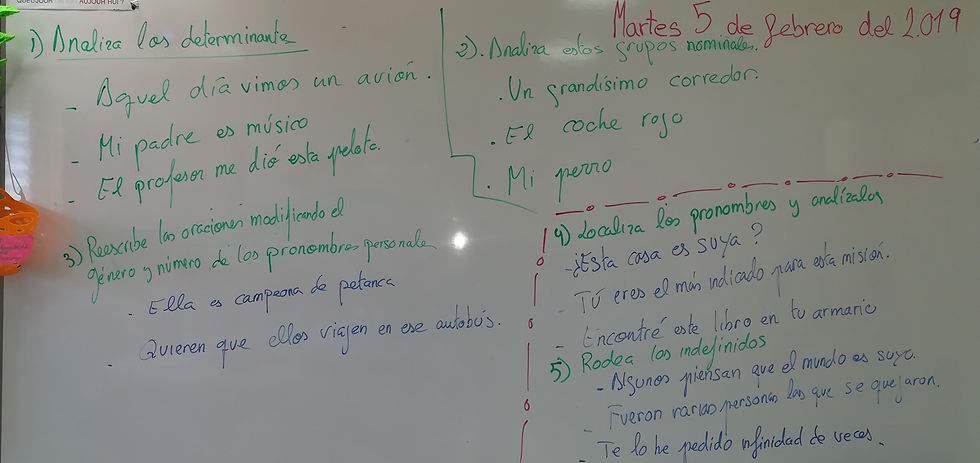 AUJOURD'HUI ?
Martes 5 de febrero del 2.019
1) Analiza los determinantes
- Aquel día vimos un avión.
- Mi padre es músico
- El profesor me dió esta pelota.
2). Analiza estos grupos nominales.
. Un grandísimo corredor.
. El coche rojo
. Mi perro
3) Reescribe las oraciones modificando el
género y número de los pronombres personales
. Ella es campeona de petanca
. Quieren que ellos viajen en ese autobús.
4) Localiza los pronombres y analízalos
- ¿Esta casa es suya?
- Tú eres el más indicado para esta misión.
- Encontré este libro en tu armario
5) Rodea los indefinidos
- Algunos piensan que el mundo es suyo.
- Fueron varias personas las que se quejaron.
- Te lo he pedido infinidad de veces.